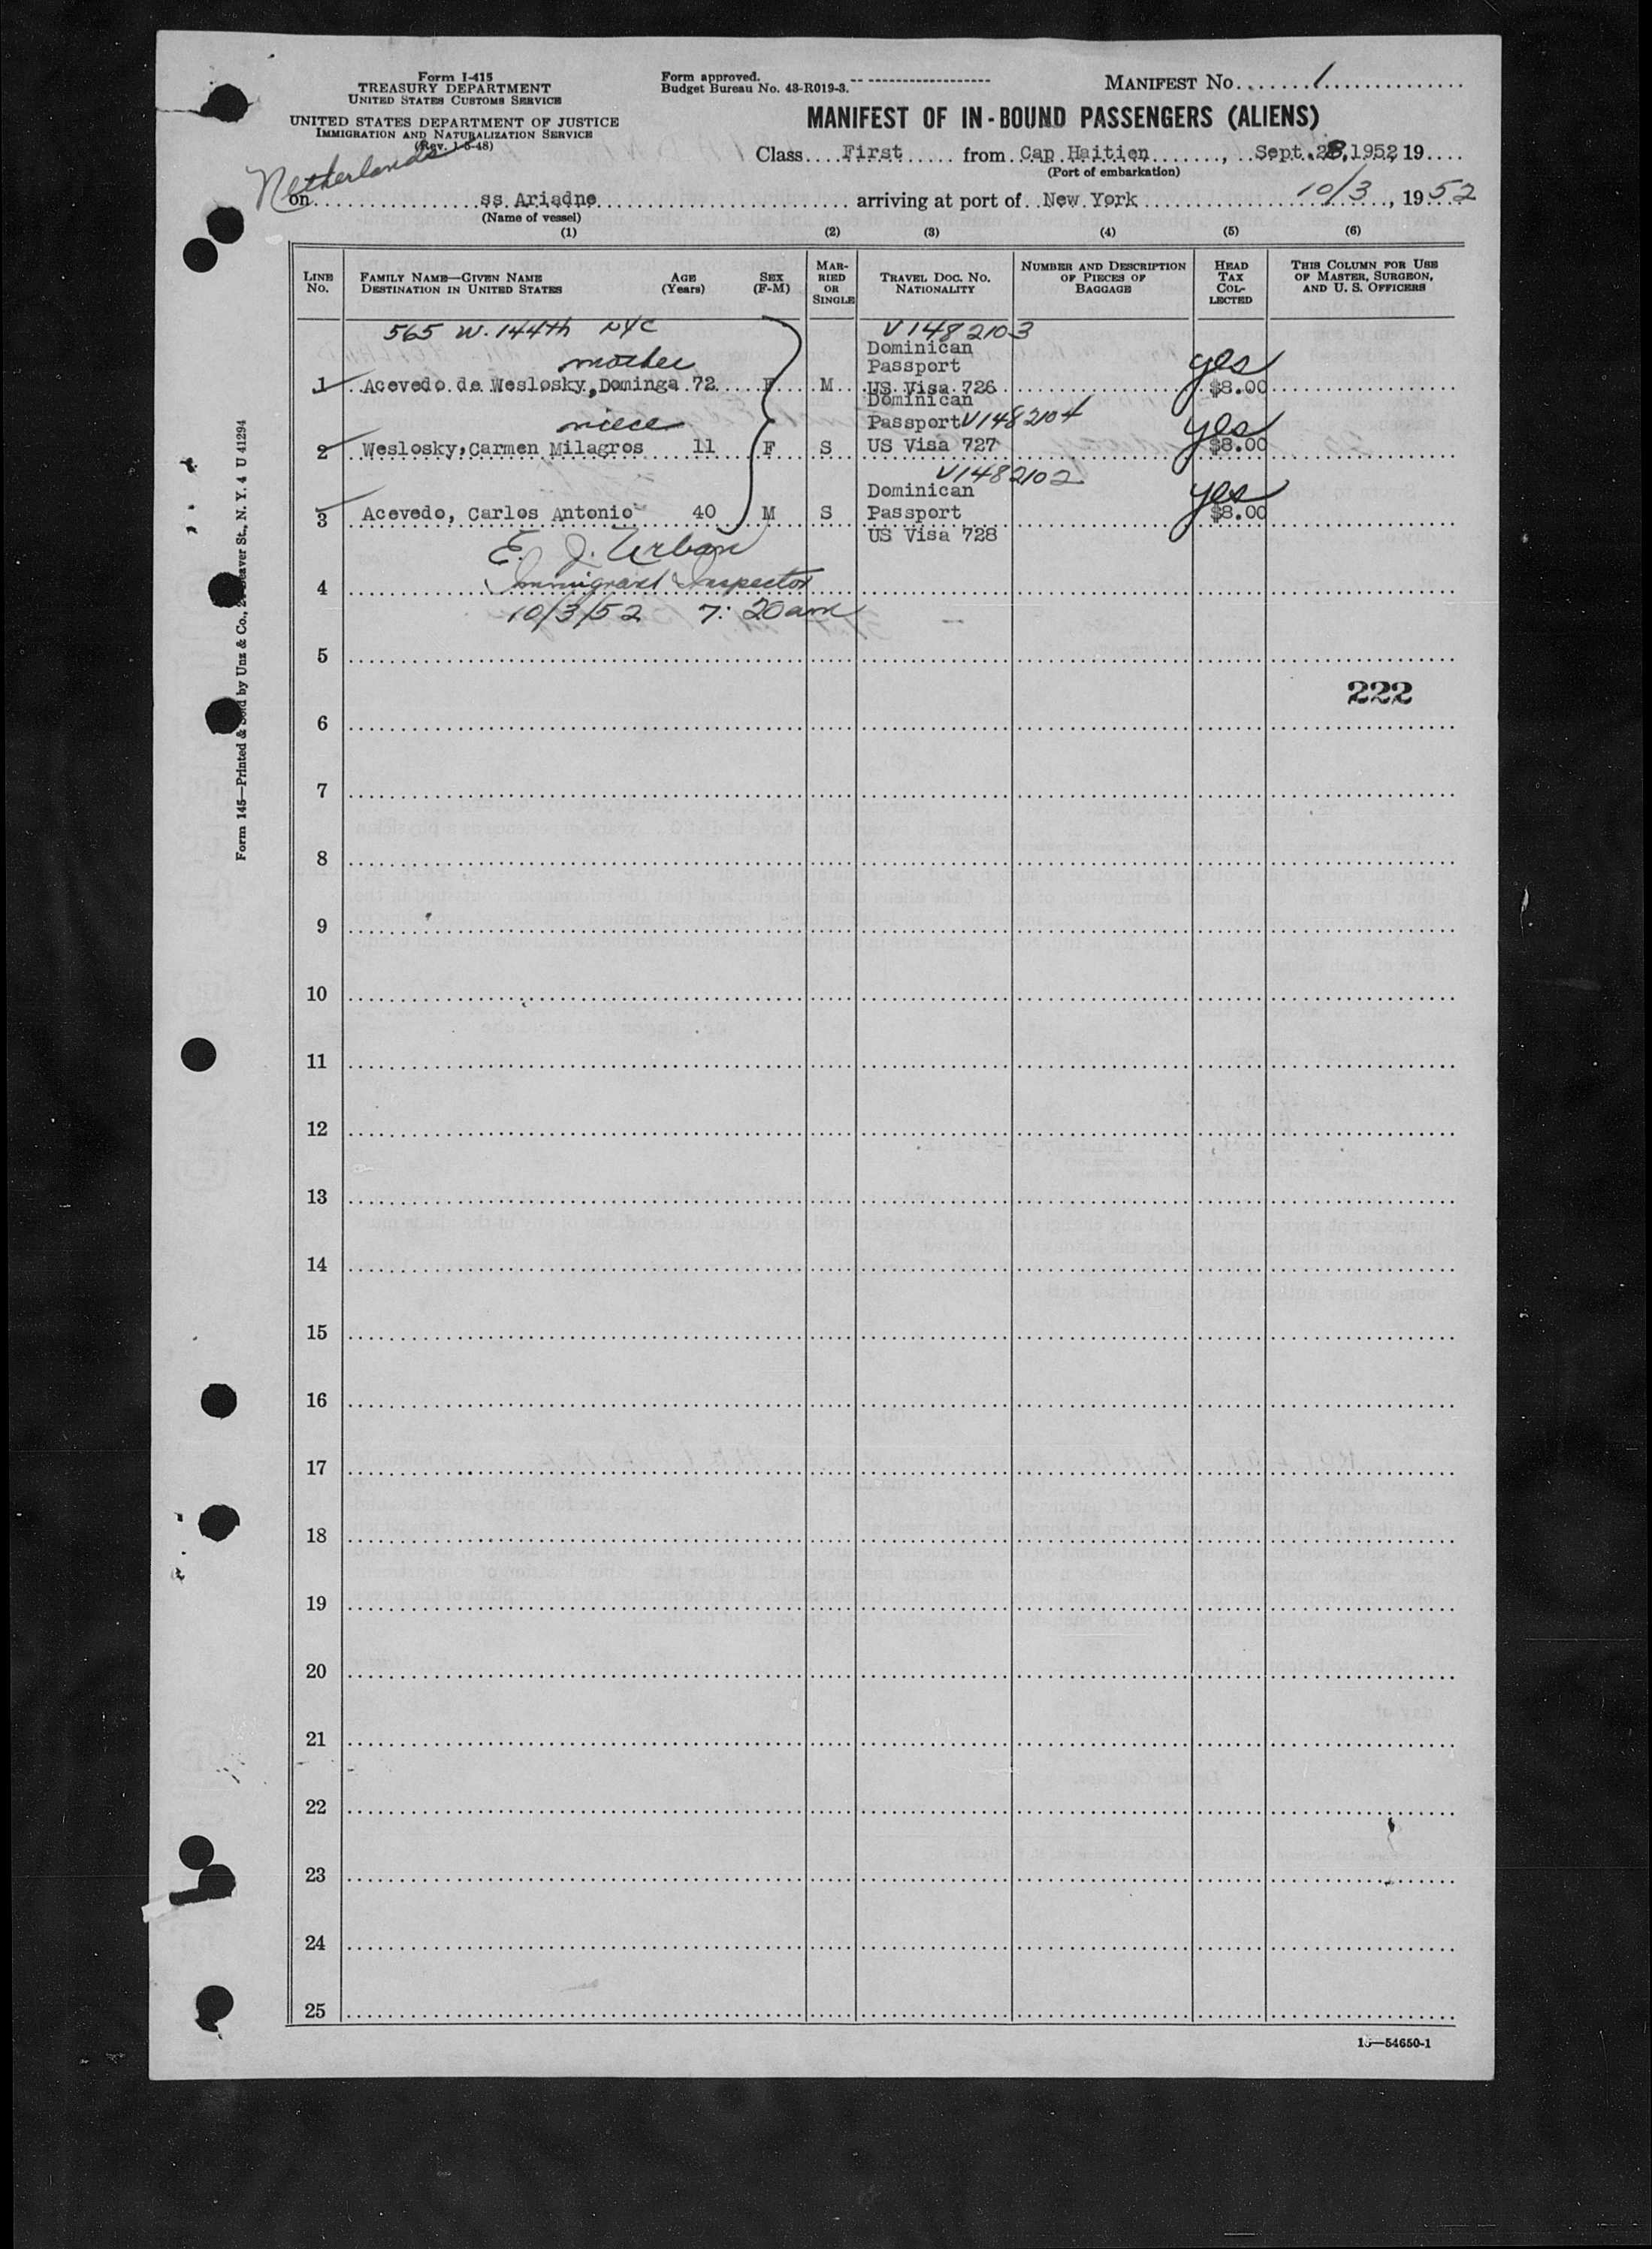 Form I-415
TREASURY DEPARTMENT
UNITED STATES CUSTOMS SERVICE
UNITED STATES DEPARTMENT OF JUSTICE
IMMIGRATION AND NATURALIZATION SERVICE
(Rev. 1-5-48)
Form approved.
Budget Bureau No. 43-R019-3.
MANIFEST No. 1
MANIFEST OF IN-BOUND PASSENGERS (ALIENS)
Class First from Cap Haitien, Sept. 1952 19
(Port of embarkation)
Netherlands
on ss Ariadne arriving at port of New York 10/3, 1952
(Name of vessel)
(1) (2) (3) (4) (5) (6)
LINE No.
FAMILY NAME—GIVEN NAME
DESTINATION IN UNITED STATES
AGE (Years)
SEX (F-M)
MARRIED OR SINGLE
TRAVEL DOC. NO.
NATIONALITY
NUMBER AND DESCRIPTION OF PIECES OF BAGGAGE
HEAD TAX COLLECTED
THIS COLUMN FOR USE OF MASTER, SURGEON, AND U. S. OFFICERS
565 W. 144th NYC V1482103
mother Dominican
Passport yes
1 Acevedo de Weslosky, Dominga 72 F M US Visa 726 $8.00
Dominican
niece Passport V1482104 yes
2 Weslosky, Carmen Milagros 11 F S US Visa 727 $8.00
V1482102
Dominican yes
3 Acevedo, Carlos Antonio 40 M S Passport $8.00
US Visa 728
E. J. Urban
4 Immigrant Inspector
10/3/52 7:20 am
5
222
6
7
8
9
10
11
12
13
14
15
16
17
18
19
20
21
22
23
24
25
—54650-1
Form 145—Printed & Sold by Unz & Co., Beaver St., N. Y. 4 U 41294